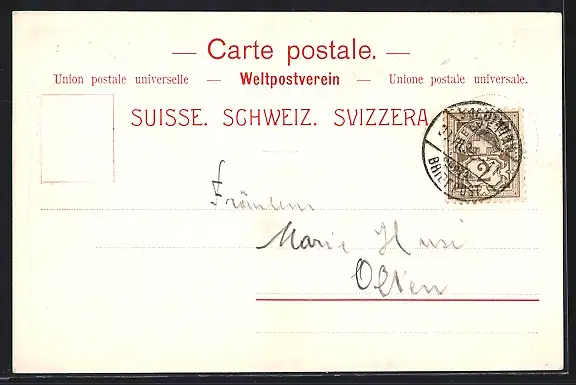 — Carte postale. —
Union postale universelle — Weltpostverein — Unione postale universale.
SUISSE. SCHWEIZ. SVIZZERA.
2
Fräulein
Marie Husi
Olten